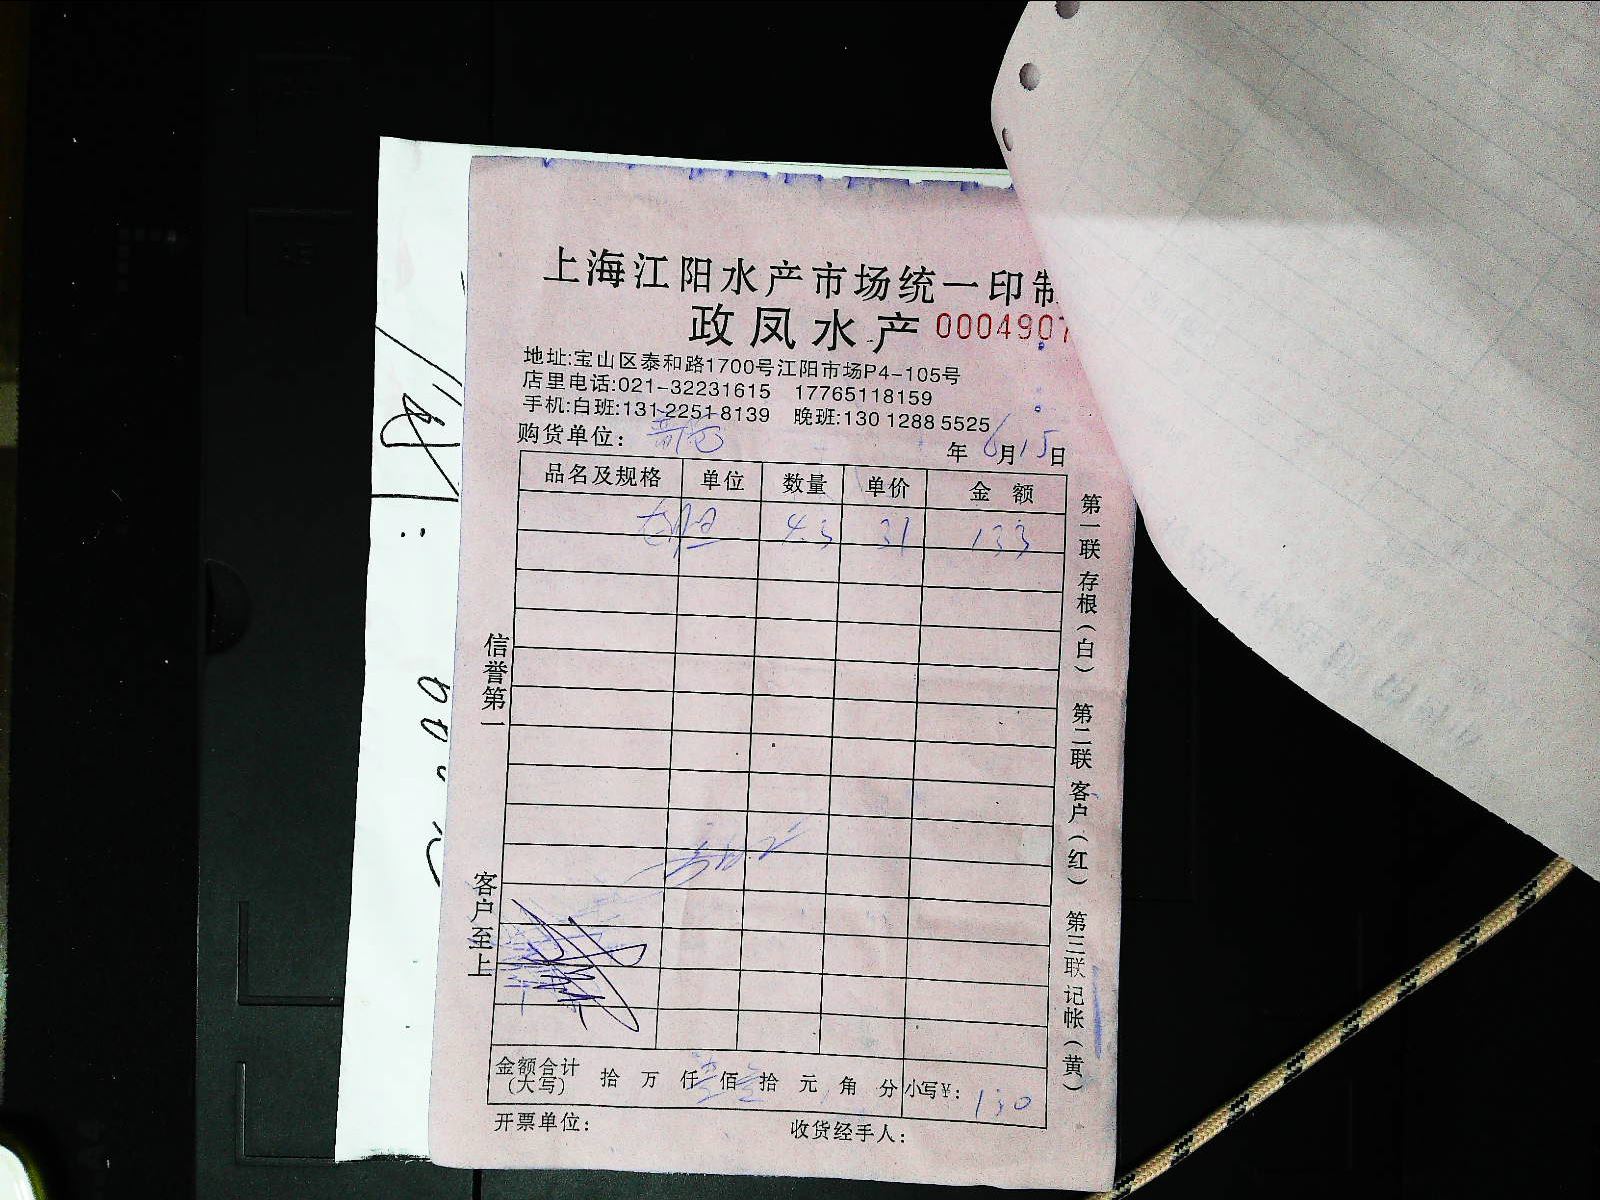 上海江阳水产市场统一印制
政凤水产 0004907
地址:宝山区泰和路1700号江阳市场P4-105号
店里电话:021-32231615 17765118159
手机:白班:131 2251 8139 晚班:130 1288 5525
购货单位: 年 6月15日
品名及规格 单位 数量 单价 金 额
4.3 31 133
信誉第一
客户至上
第一联 存根(白) 第二联 客户(红) 第三联 记帐(黄)
金额合计(大写) 拾 万 仟 佰 拾 元 角 分 小写¥: 130
开票单位: 收货经手人: